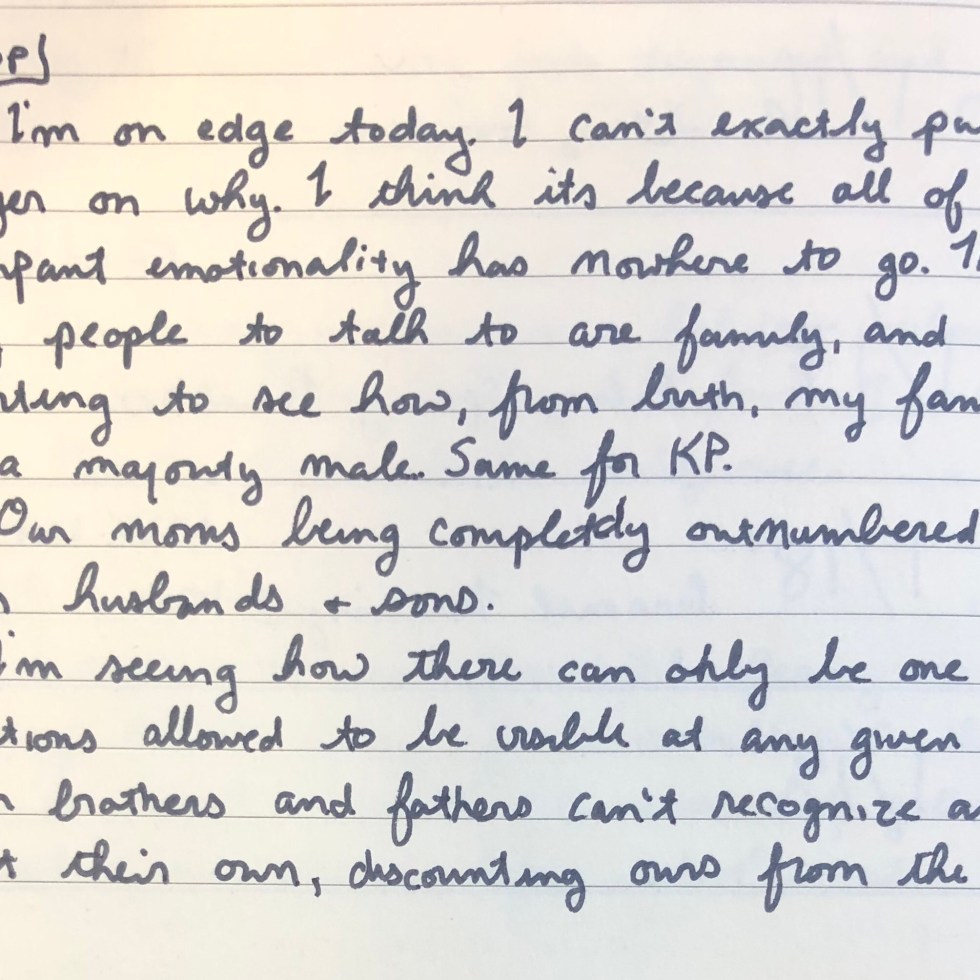 I'm on edge today. I can't exactly pu
ger on why. I think its because all of
mpant emotionality has nowhere to go. Th
people to talk to are family, and
ting to see how, from birth, my fam
a majority male. Same for KP.
Our moms being completely outnumbered
husbands + sons.
I'm seeing how there can only be one
tions allowed to be visible at any given
brothers and fathers can't recognize a
t their own, discounting ours from the